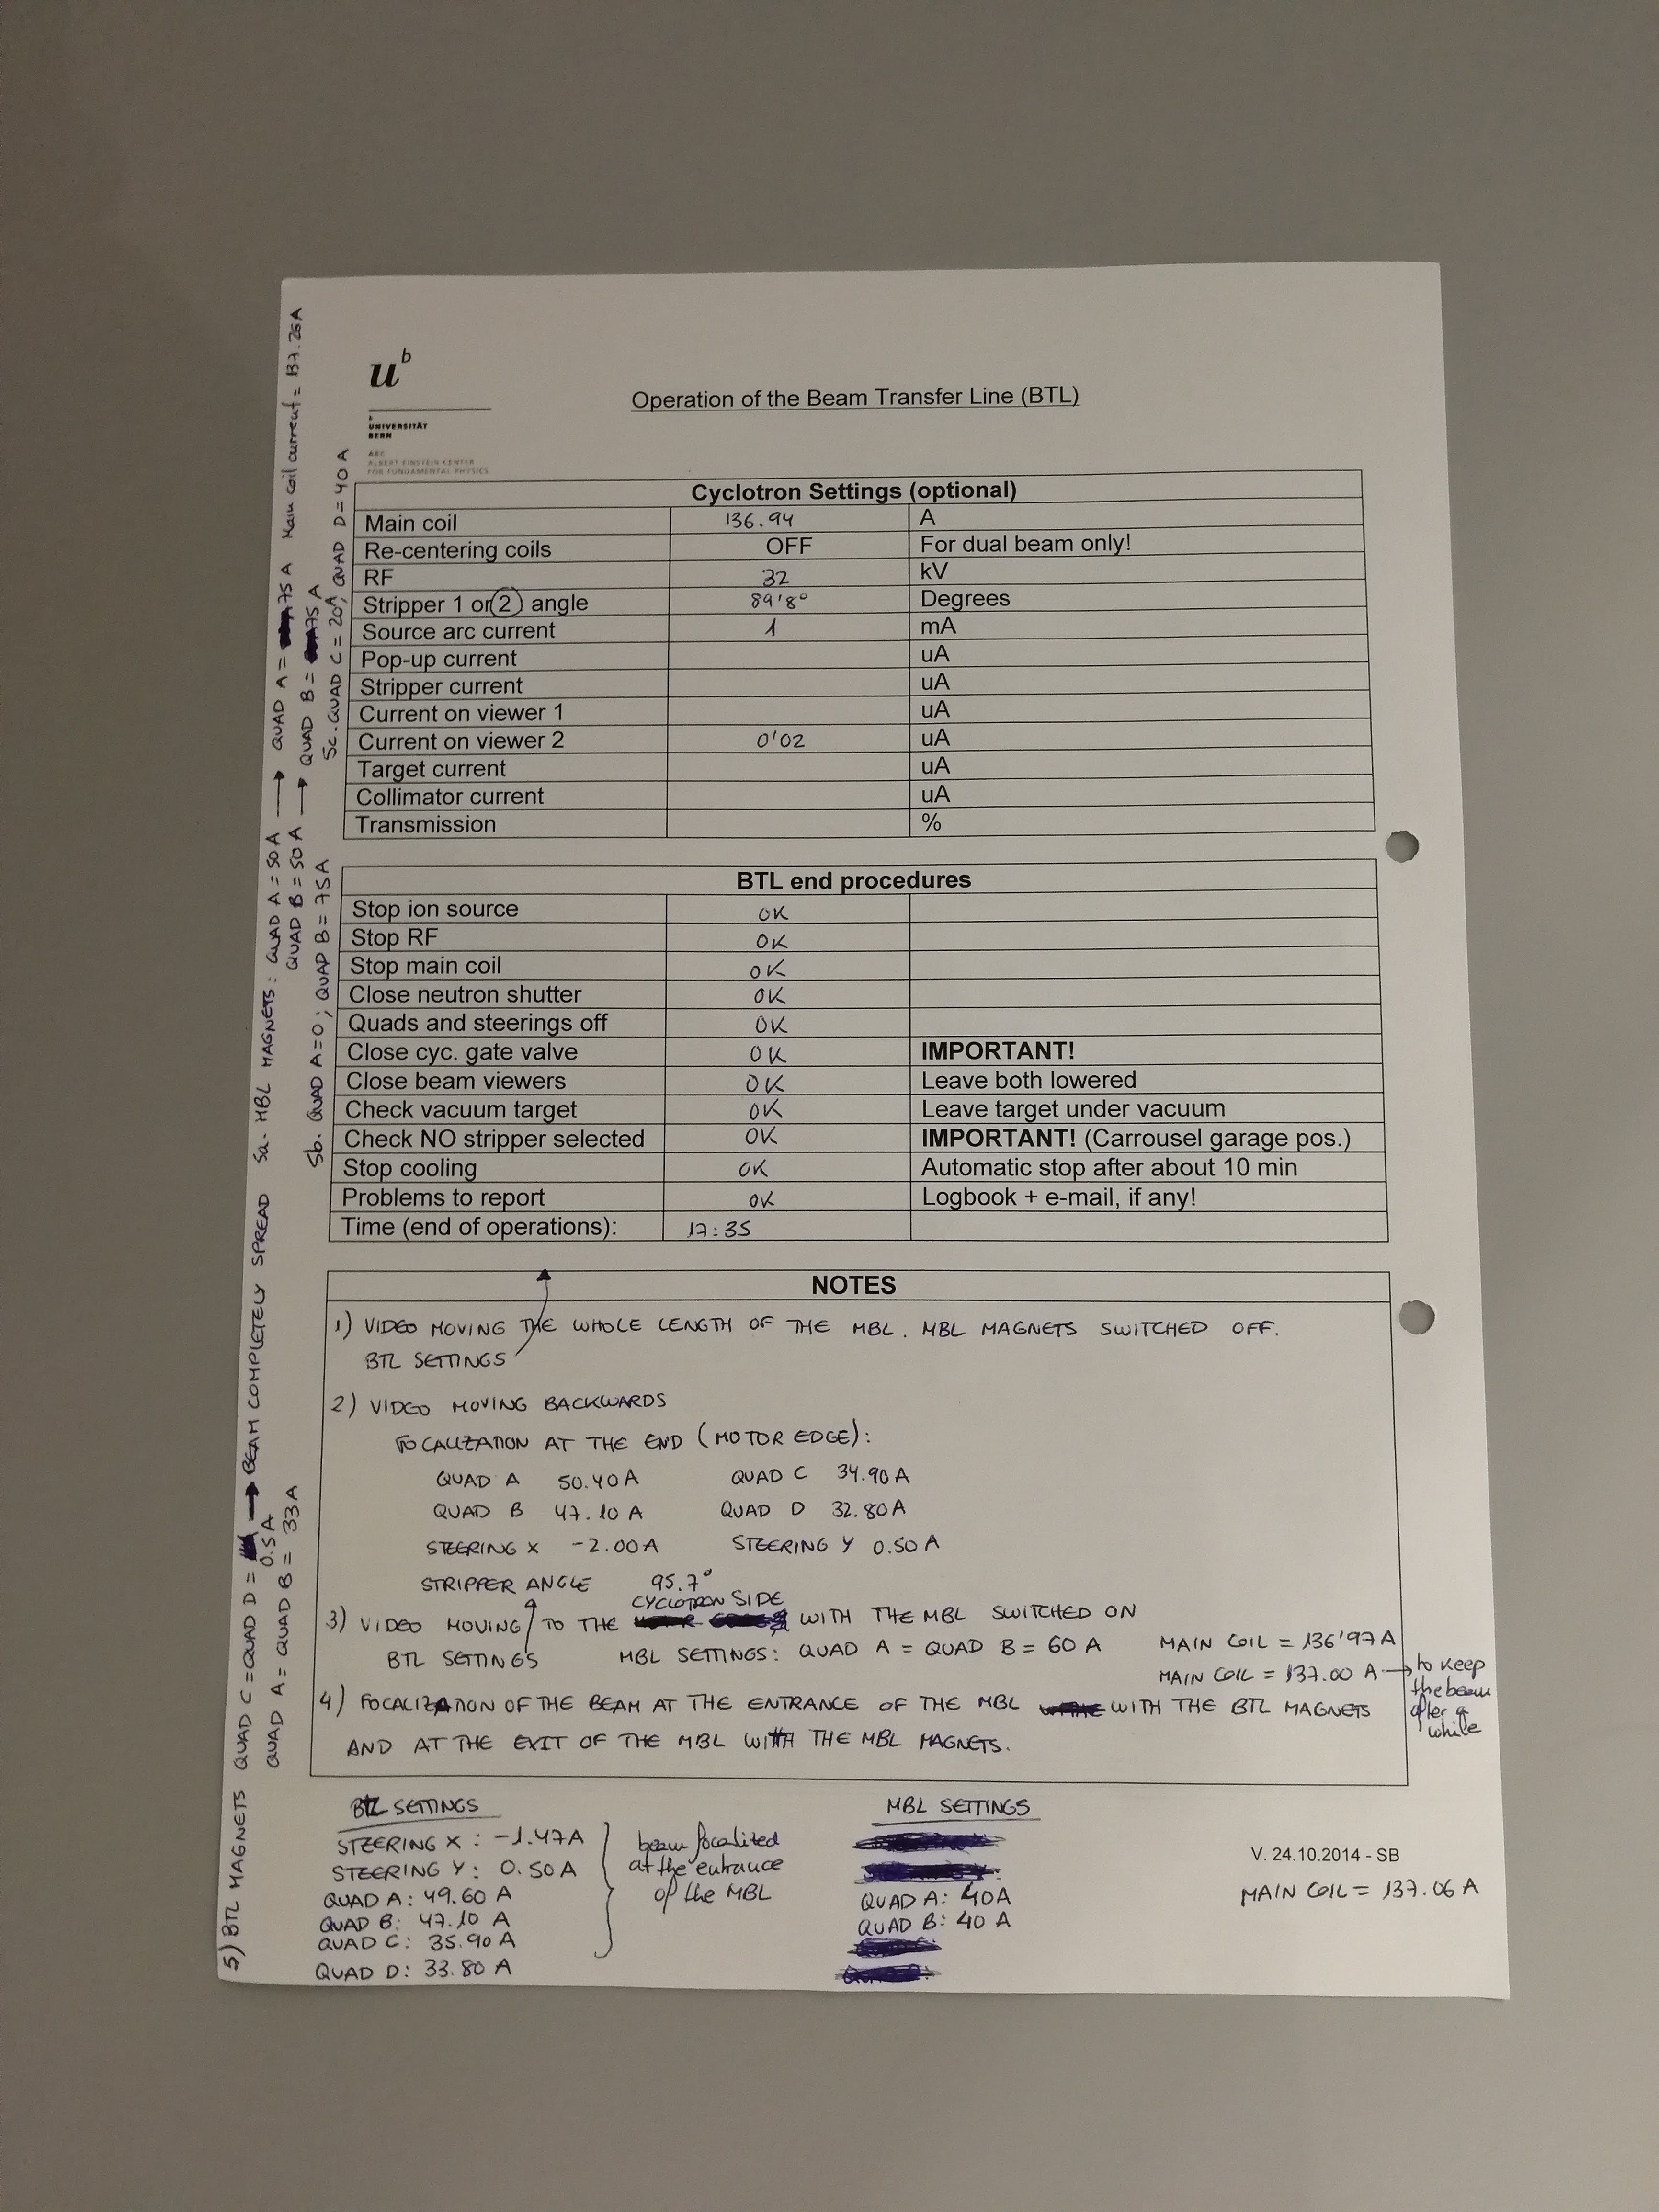 u^b
b
UNIVERSITÄT
BERN
AEC
ALBERT EINSTEIN CENTER
FOR FUNDAMENTAL PHYSICS
Operation of the Beam Transfer Line (BTL)
Cyclotron Settings (optional)
Main coil 136.94 A
Re-centering coils OFF For dual beam only!
RF 32 kV
Stripper 1 or 2 angle 89'8° Degrees
Source arc current 1 mA
Pop-up current uA
Stripper current uA
Current on viewer 1 uA
Current on viewer 2 0'02 uA
Target current uA
Collimator current uA
Transmission %
BTL end procedures
Stop ion source OK
Stop RF OK
Stop main coil OK
Close neutron shutter OK
Quads and steerings off OK
Close cyc. gate valve OK IMPORTANT!
Close beam viewers OK Leave both lowered
Check vacuum target OK Leave target under vacuum
Check NO stripper selected OK IMPORTANT! (Carrousel garage pos.)
Stop cooling OK Automatic stop after about 10 min
Problems to report OK Logbook + e-mail, if any!
Time (end of operations): 17:35
NOTES
1) VIDEO MOVING THE WHOLE LENGTH OF THE MBL. MBL MAGNETS SWITCHED OFF.
BTL SETTINGS
2) VIDEO MOVING BACKWARDS
FOCALIZATION AT THE END (MOTOR EDGE):
QUAD A 50.40 A QUAD C 34.90 A
QUAD B 47.10 A QUAD D 32.80 A
STEERING X -2.00 A STEERING Y 0.50 A
STRIPPER ANGLE 95.7°
CYCLOTRON SIDE
3) VIDEO MOVING TO THE WITH THE MBL SWITCHED ON
BTL SETTINGS MBL SETTINGS: QUAD A = QUAD B = 60 A MAIN COIL = 136'97 A
MAIN COIL = 137.00 A → to keep
the beam
after a
while
4) FOCALIZATION OF THE BEAM AT THE ENTRANCE OF THE MBL WITH THE BTL MAGNETS
AND AT THE EXIT OF THE MBL WITH THE MBL MAGNETS.
BTL SETTINGS
STEERING X: -1.47 A
STEERING Y: 0.50 A
QUAD A: 49.60 A
QUAD B: 47.10 A
QUAD C: 35.90 A
QUAD D: 33.80 A
beam focalized
at the entrance
of the MBL
MBL SETTINGS
QUAD A: 40 A
QUAD B: 40 A
V. 24.10.2014 - SB
MAIN COIL = 137.06 A
5) BTL MAGNETS QUAD C = QUAD D = 0.5 A → BEAM COMPLETELY SPREAD
QUAD A = QUAD B = 33 A
5a. MBL MAGNETS: QUAD A = 50 A → QUAD A = 75 A Main coil current = 137.26 A
QUAD B = 50 A → QUAD B = 75 A
5b. QUAD A = 0; QUAD B = 75 A
5c. QUAD C = 20 A; QUAD D = 40 A